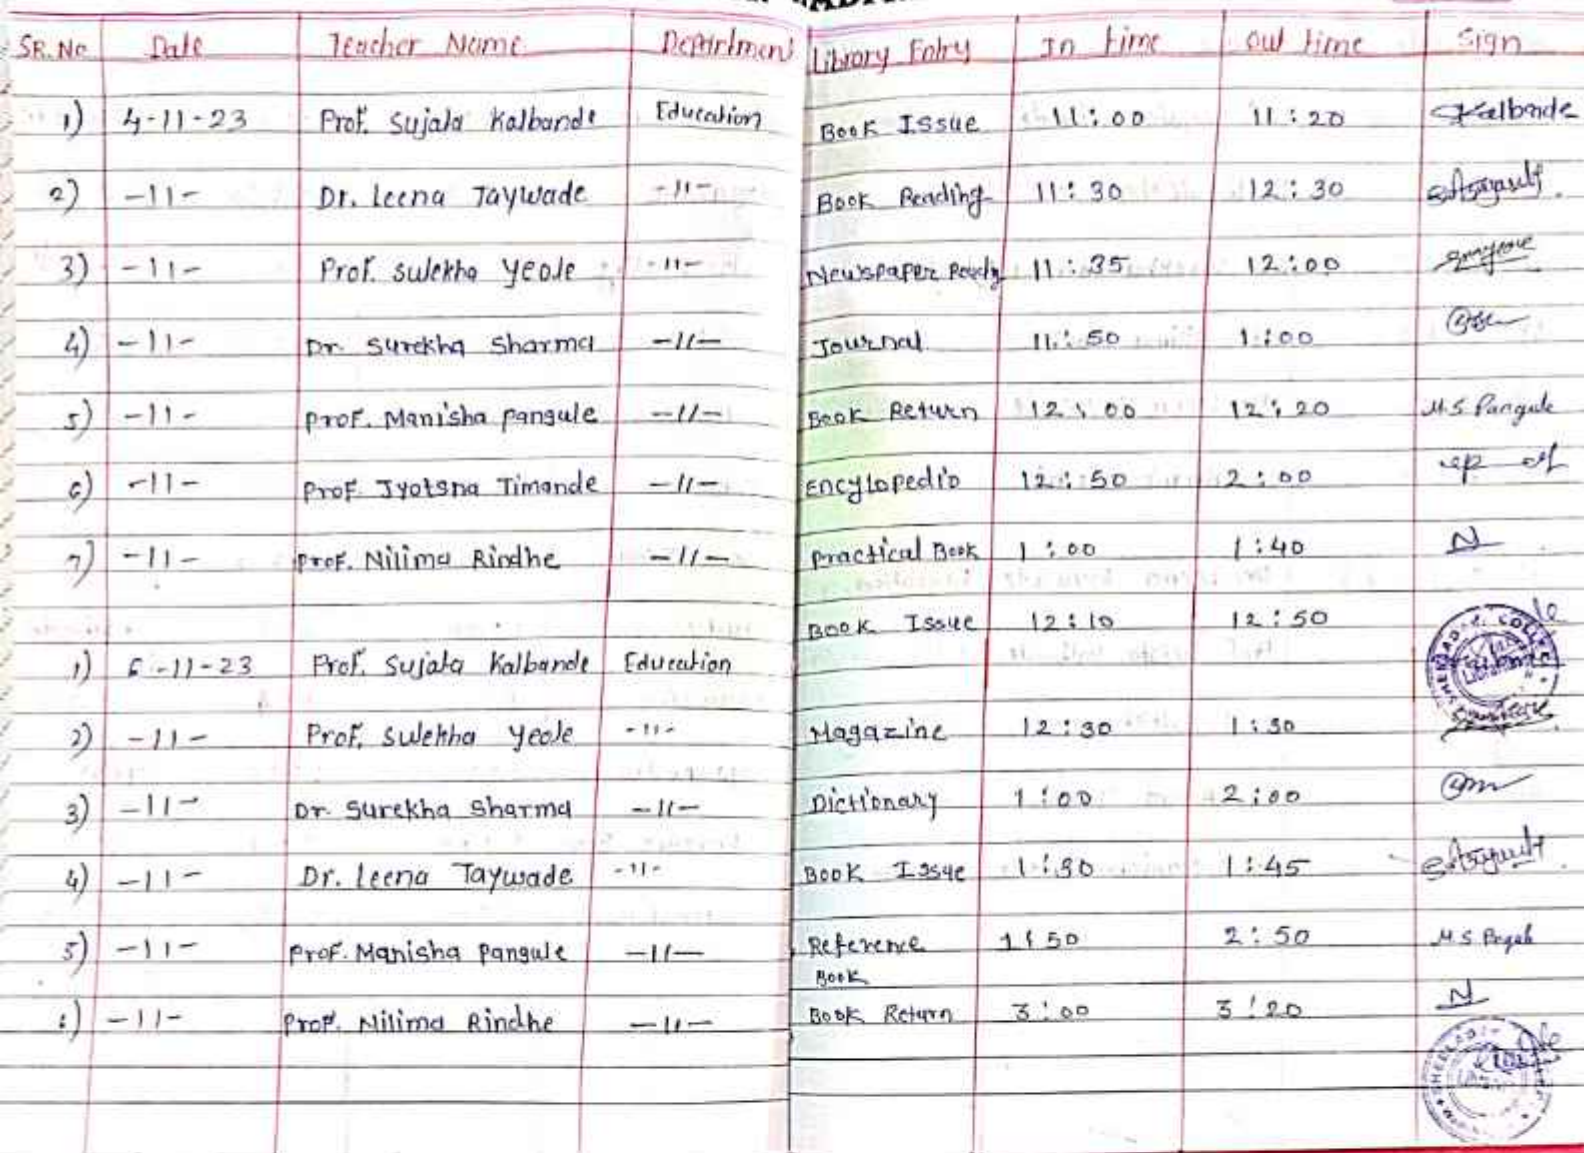 SR.No Date Teacher Name Department Library Entry In time Out time Sign
1) 4-11-23 Prof. Sujala Kalbande Education Book Issue 11:00 11:20 Kalbande
2) -11- Dr. Leena Taywade -11- Book Reading 11:30 12:30
3) -11- Prof. Sulekha Yeole -11- Newspaper 11:35 12:00
4) -11- Dr. Surekha Sharma -11- Journal 11:50 1:00
5) -11- Prof. Manisha Pangule -11- Book Return 12:00 12:20 M.S. Pangule
6) -11- Prof. Jyotsna Timande -11- Encylopedia 12:50 2:00
7) -11- Prof. Nilima Rindhe -11- Practical Book 1:00 1:40 N
1) 6-11-23 Prof. Sujala Kalbande Education Book Issue 12:10 12:50
Librarian
2) -11- Prof. Sulekha Yeole -11- Magazine 12:30 1:30
3) -11- Dr. Surekha Sharma -11- Dictionary 1:00 2:00
4) -11- Dr. Leena Taywade -11- Book Issue 1:30 1:45
5) -11- Prof. Manisha Pangule -11- Reference 1:50 2:50 M S
Book
-11- Prof. Nilima Rindhe -11- Book Return 3:00 3:20 N